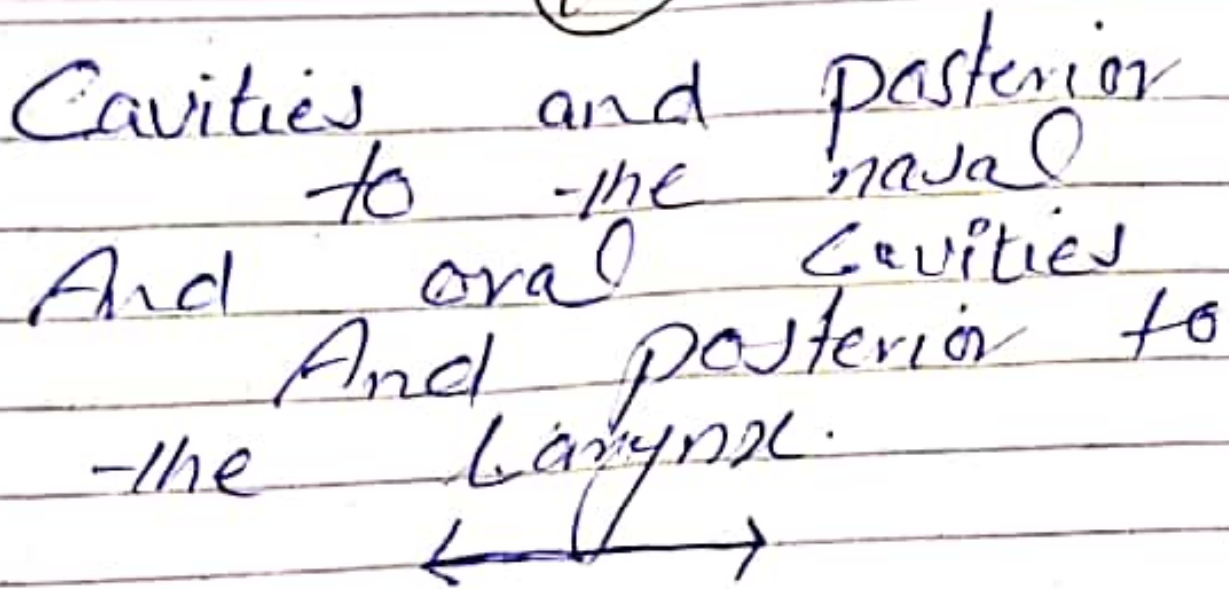 Cavities and posterior
to the nasal
And oral Cavities
And posterior to
the Larynx.